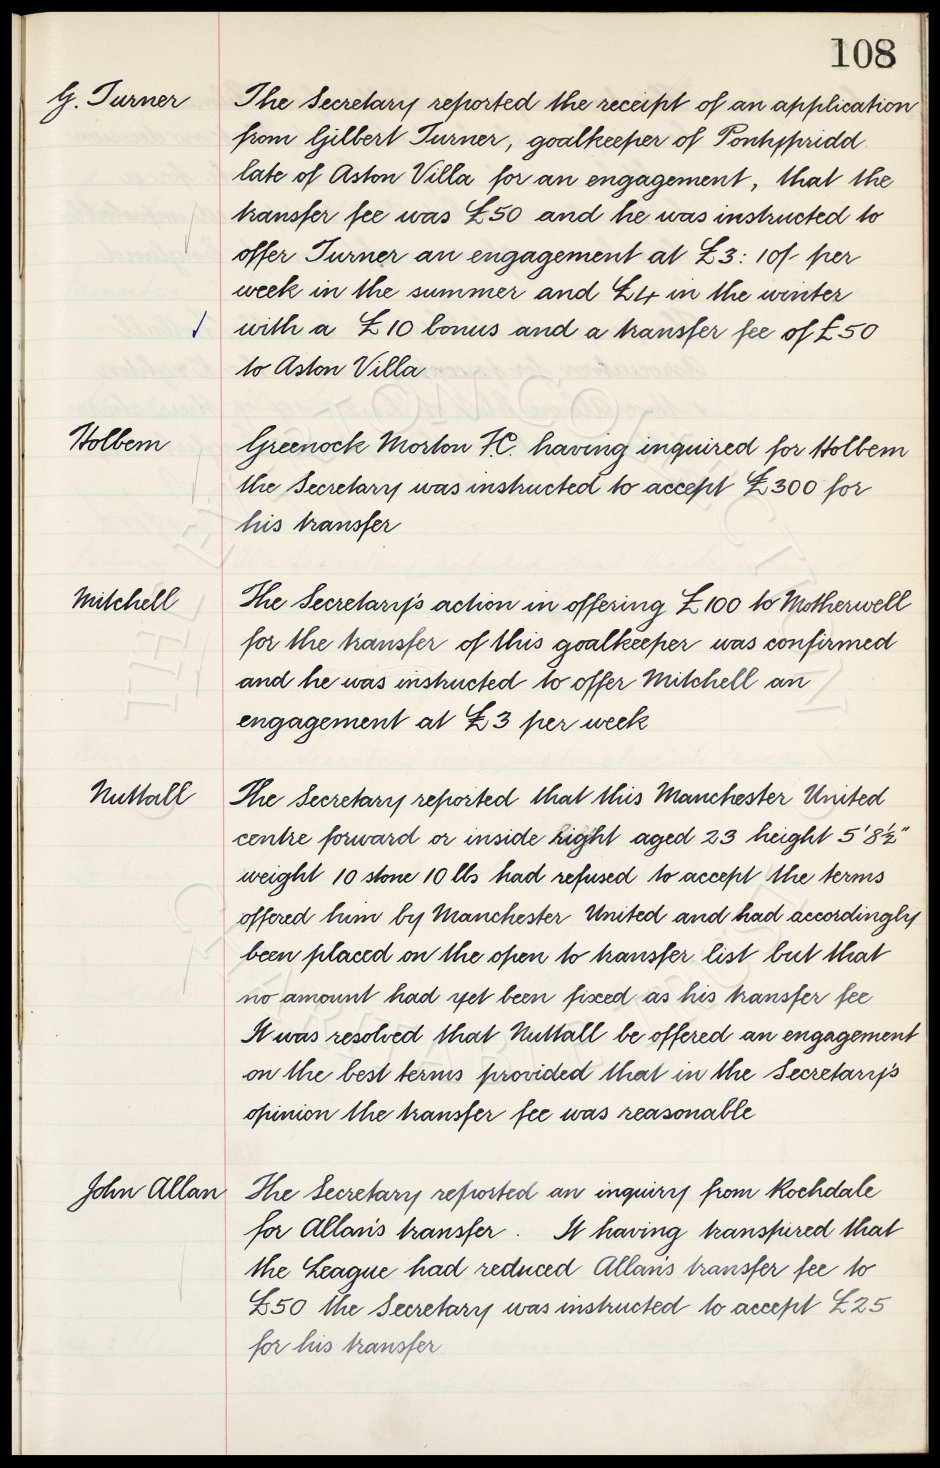 108
G. Turner The Secretary reported the receipt of an application
from Gilbert Turner, goalkeeper of Pontypridd
late of Aston Villa for an engagement, that the
transfer fee was £50 and he was instructed to
offer Turner an engagement at £3: 10/- per
week in the summer and £4 in the winter
with a £10 bonus and a transfer fee of £50
to Aston Villa
Holbem Greenock Morton F.C. having inquired for Holbem
the Secretary was instructed to accept £300 for
his transfer
Mitchell The Secretary's action in offering £100 to Motherwell
for the transfer of this goalkeeper was confirmed
and he was instructed to offer Mitchell an
engagement at £3 per week
Nuttall The Secretary reported that this Manchester United
centre forward or inside right aged 23 height 5'8½"
weight 10 stone 10 lbs had refused to accept the terms
offered him by Manchester United and had accordingly
been placed on the open to transfer list but that
no amount had yet been fixed as his transfer fee
It was resolved that Nuttall be offered an engagement
on the best terms provided that in the Secretary's
opinion the transfer fee was reasonable
John Allan The Secretary reported an inquiry from Rochdale
for Allan's transfer. It having transpired that
the League had reduced Allan's transfer fee to
£50 the Secretary was instructed to accept £25
for his transfer